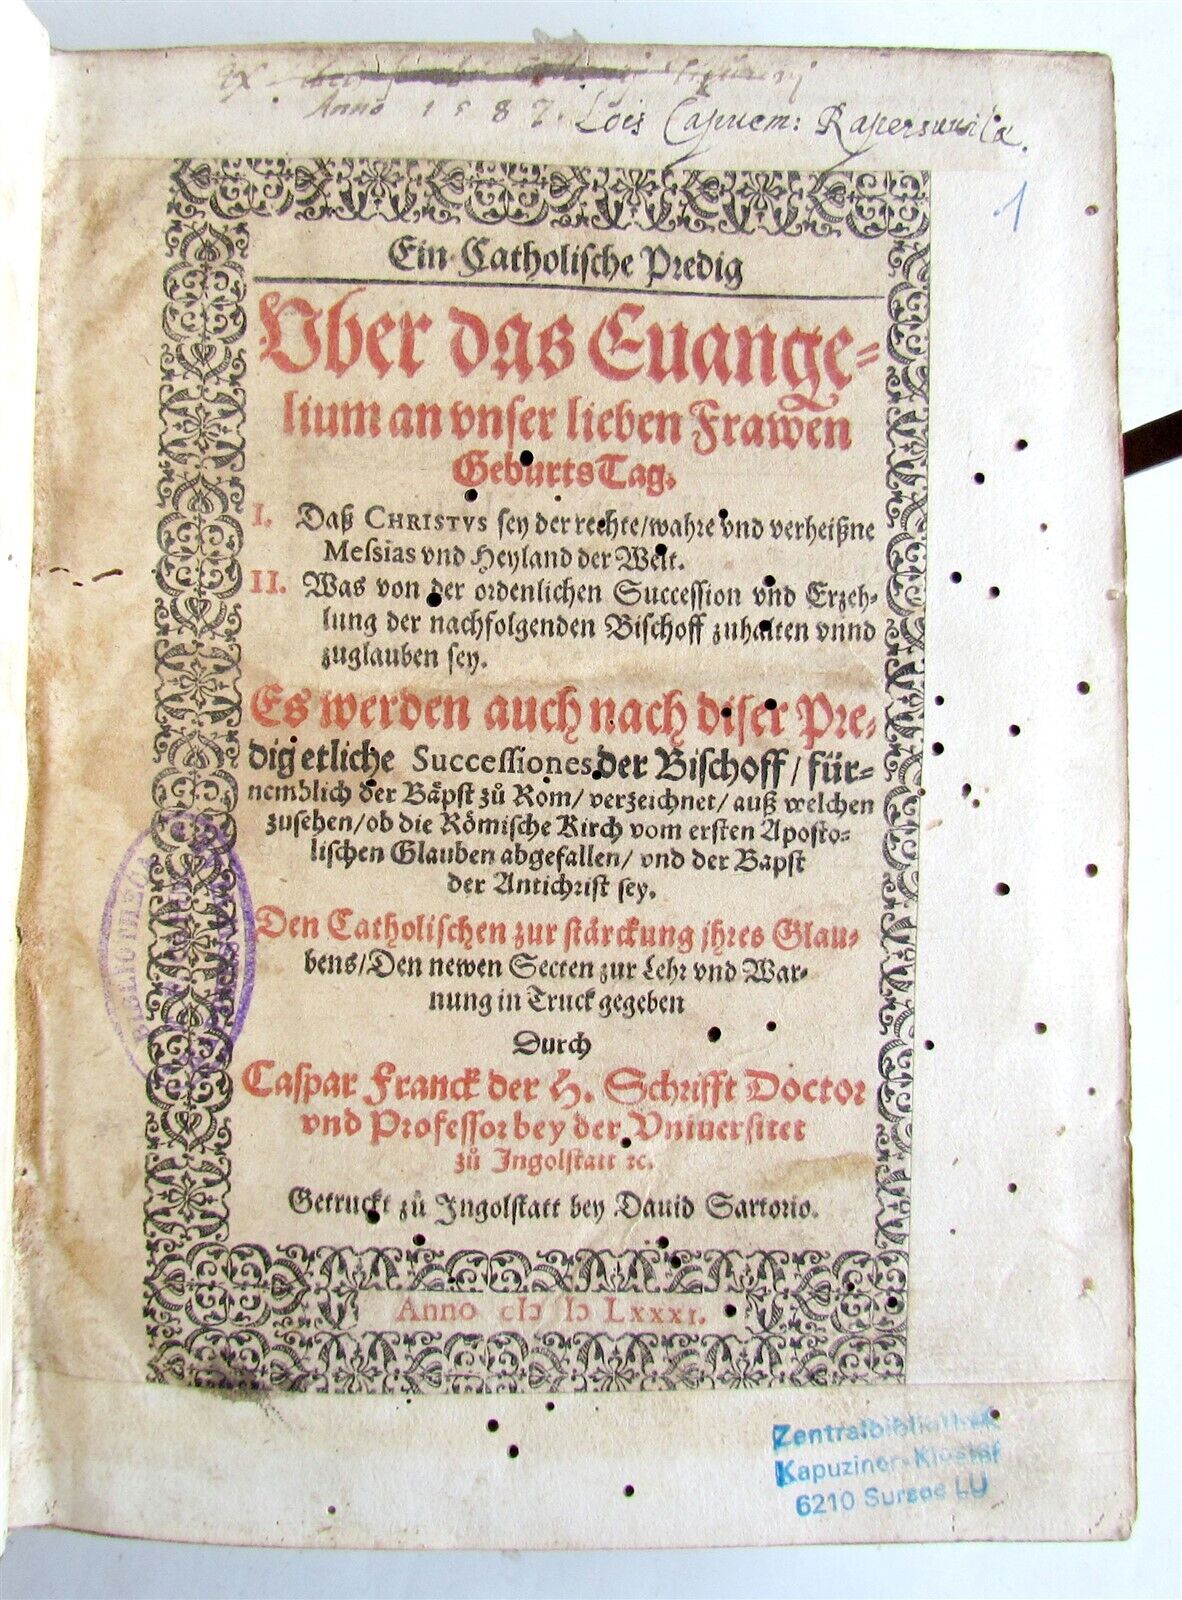 Ex
Anno 1587. Lois Capucm: Rapersuilæ.
1
Ein Catholische Predig
Vber das Euange-
lium an vnser lieben Frawen
Geburts Tag.
I. Daß CHRISTVS sey der rechte/wahre vnd verheißne
Messias vnd Heyland der Welt.
II. Was von der ordenlichen Succession vnd Erzeh-
lung der nachfolgenden Bischoff zuhalten vnnd
zuglauben sey.
Es werden auch nach diser Pre-
dig etliche Successiones der Bischoff/ für-
nemblich der Bäpst zů Rom/ verzeichnet/ auß welchen
zusehen/ob die Römische Kirch vom ersten Aposto-
lischen Glauben abgefallen/ vnd der Bapst
der Antichrist sey.
Den Catholischen zur stärckung jhres Glau-
bens/Den newen Secten zur Lehr vnd War-
nung in Truck gegeben
Durch
Caspar Franck der H. Schrifft Doctor
vnd Professor bey der Vniuersitet
zů Ingolstatt ꝛc.
Getruckt zů Ingolstatt bey Dauid Sartorio.
Anno cIɔ Iɔ LXXXI.
BIBLIOTHECA
Zentralbibliothek
Kapuziner-Kloster
6210 Sursee LU